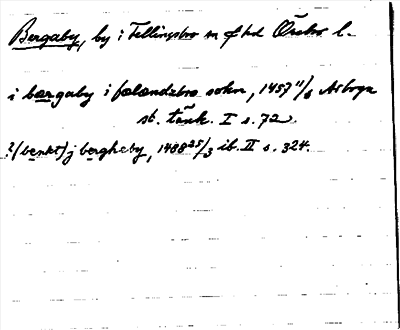 Bergaby, by i Fellingsbro sn of hd Örebro l.
i bærgaby i fælændzbro sokn, 1457 11/6 Arboga
st. tänk. I s. 72.
?(benkt) j bergheby, 1488 25/3 ib. II s. 324.